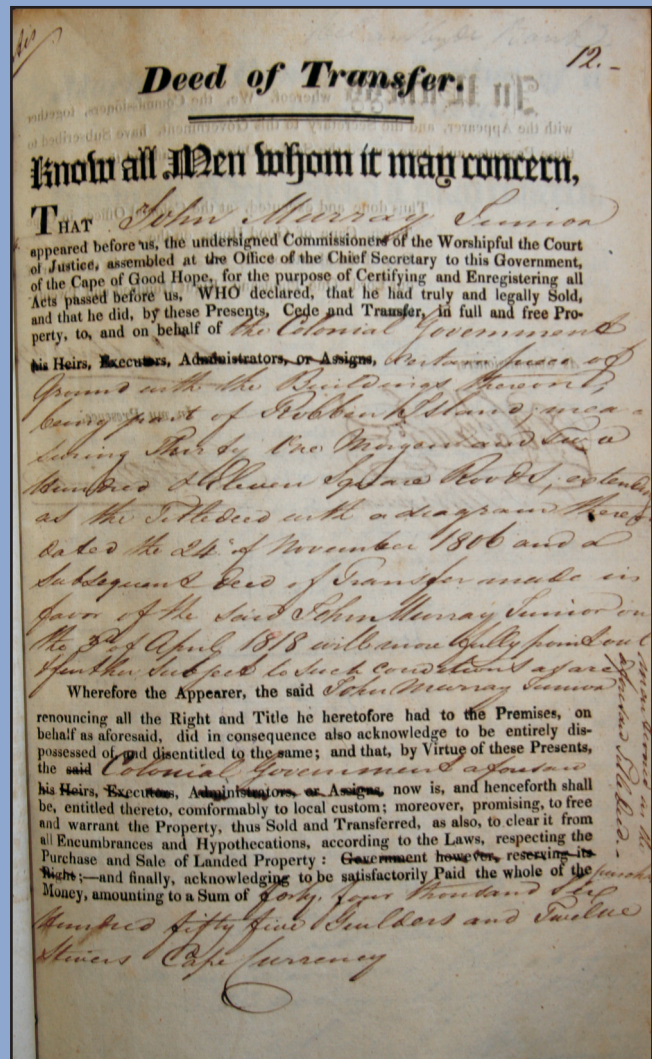 12.-
Deed of Transfer.
Know all Men whom it may concern,
THAT John Murray Junior
appeared before us, the undersigned Commissioners of the Worshipful the Court
of Justice, assembled at the Office of the Chief Secretary to this Government,
of the Cape of Good Hope, for the purpose of Certifying and Enregistering all
Acts passed before us, WHO declared, that he had truly and legally Sold,
and that he did, by these Presents, Cede and Transfer, in full and free Pro-
perty, to, and on behalf of the Colonial Government
his Heirs, Executors, Administrators, or Assigns, certain piece of
Ground with the Buildings thereon,
being part of Robben Island, mea-
suring Thirty One Morgen and Two
hundred & Eleven Square Roods, extending
as the Titledeed with a diagram thereof
dated the 24th of November 1806 and a
subsequent deed of Transfer made in
favor of the said John Murray Junior on
the 3rd of April 1818 will more fully point out
& further Subject to such conditions as are
mentioned in the
aforesaid Title deed.-
Wherefore the Appearer, the said John Murray Junior
renouncing all the Right and Title he heretofore had to the Premises, on
behalf as aforesaid, did in consequence also acknowledge to be entirely dis-
possessed of, and disentitled to the same; and that, by Virtue of these Presents,
the said Colonial Government aforesaid
his Heirs, Executors, Administrators, or Assigns, now is, and henceforth shall
be, entitled thereto, comformably to local custom; moreover, promising, to free
and warrant the Property, thus Sold and Transferred, as also, to clear it from
all Encumbrances and Hypothecations, according to the Laws, respecting the
Purchase and Sale of Landed Property: Government however, reserving its
Right;—and finally, acknowledging to be satisfactorily Paid the whole of the purchase
Money, amounting to a Sum of forty four thousand Six
hundred fifty five Guilders and Twelve
Stivers Cape Currency